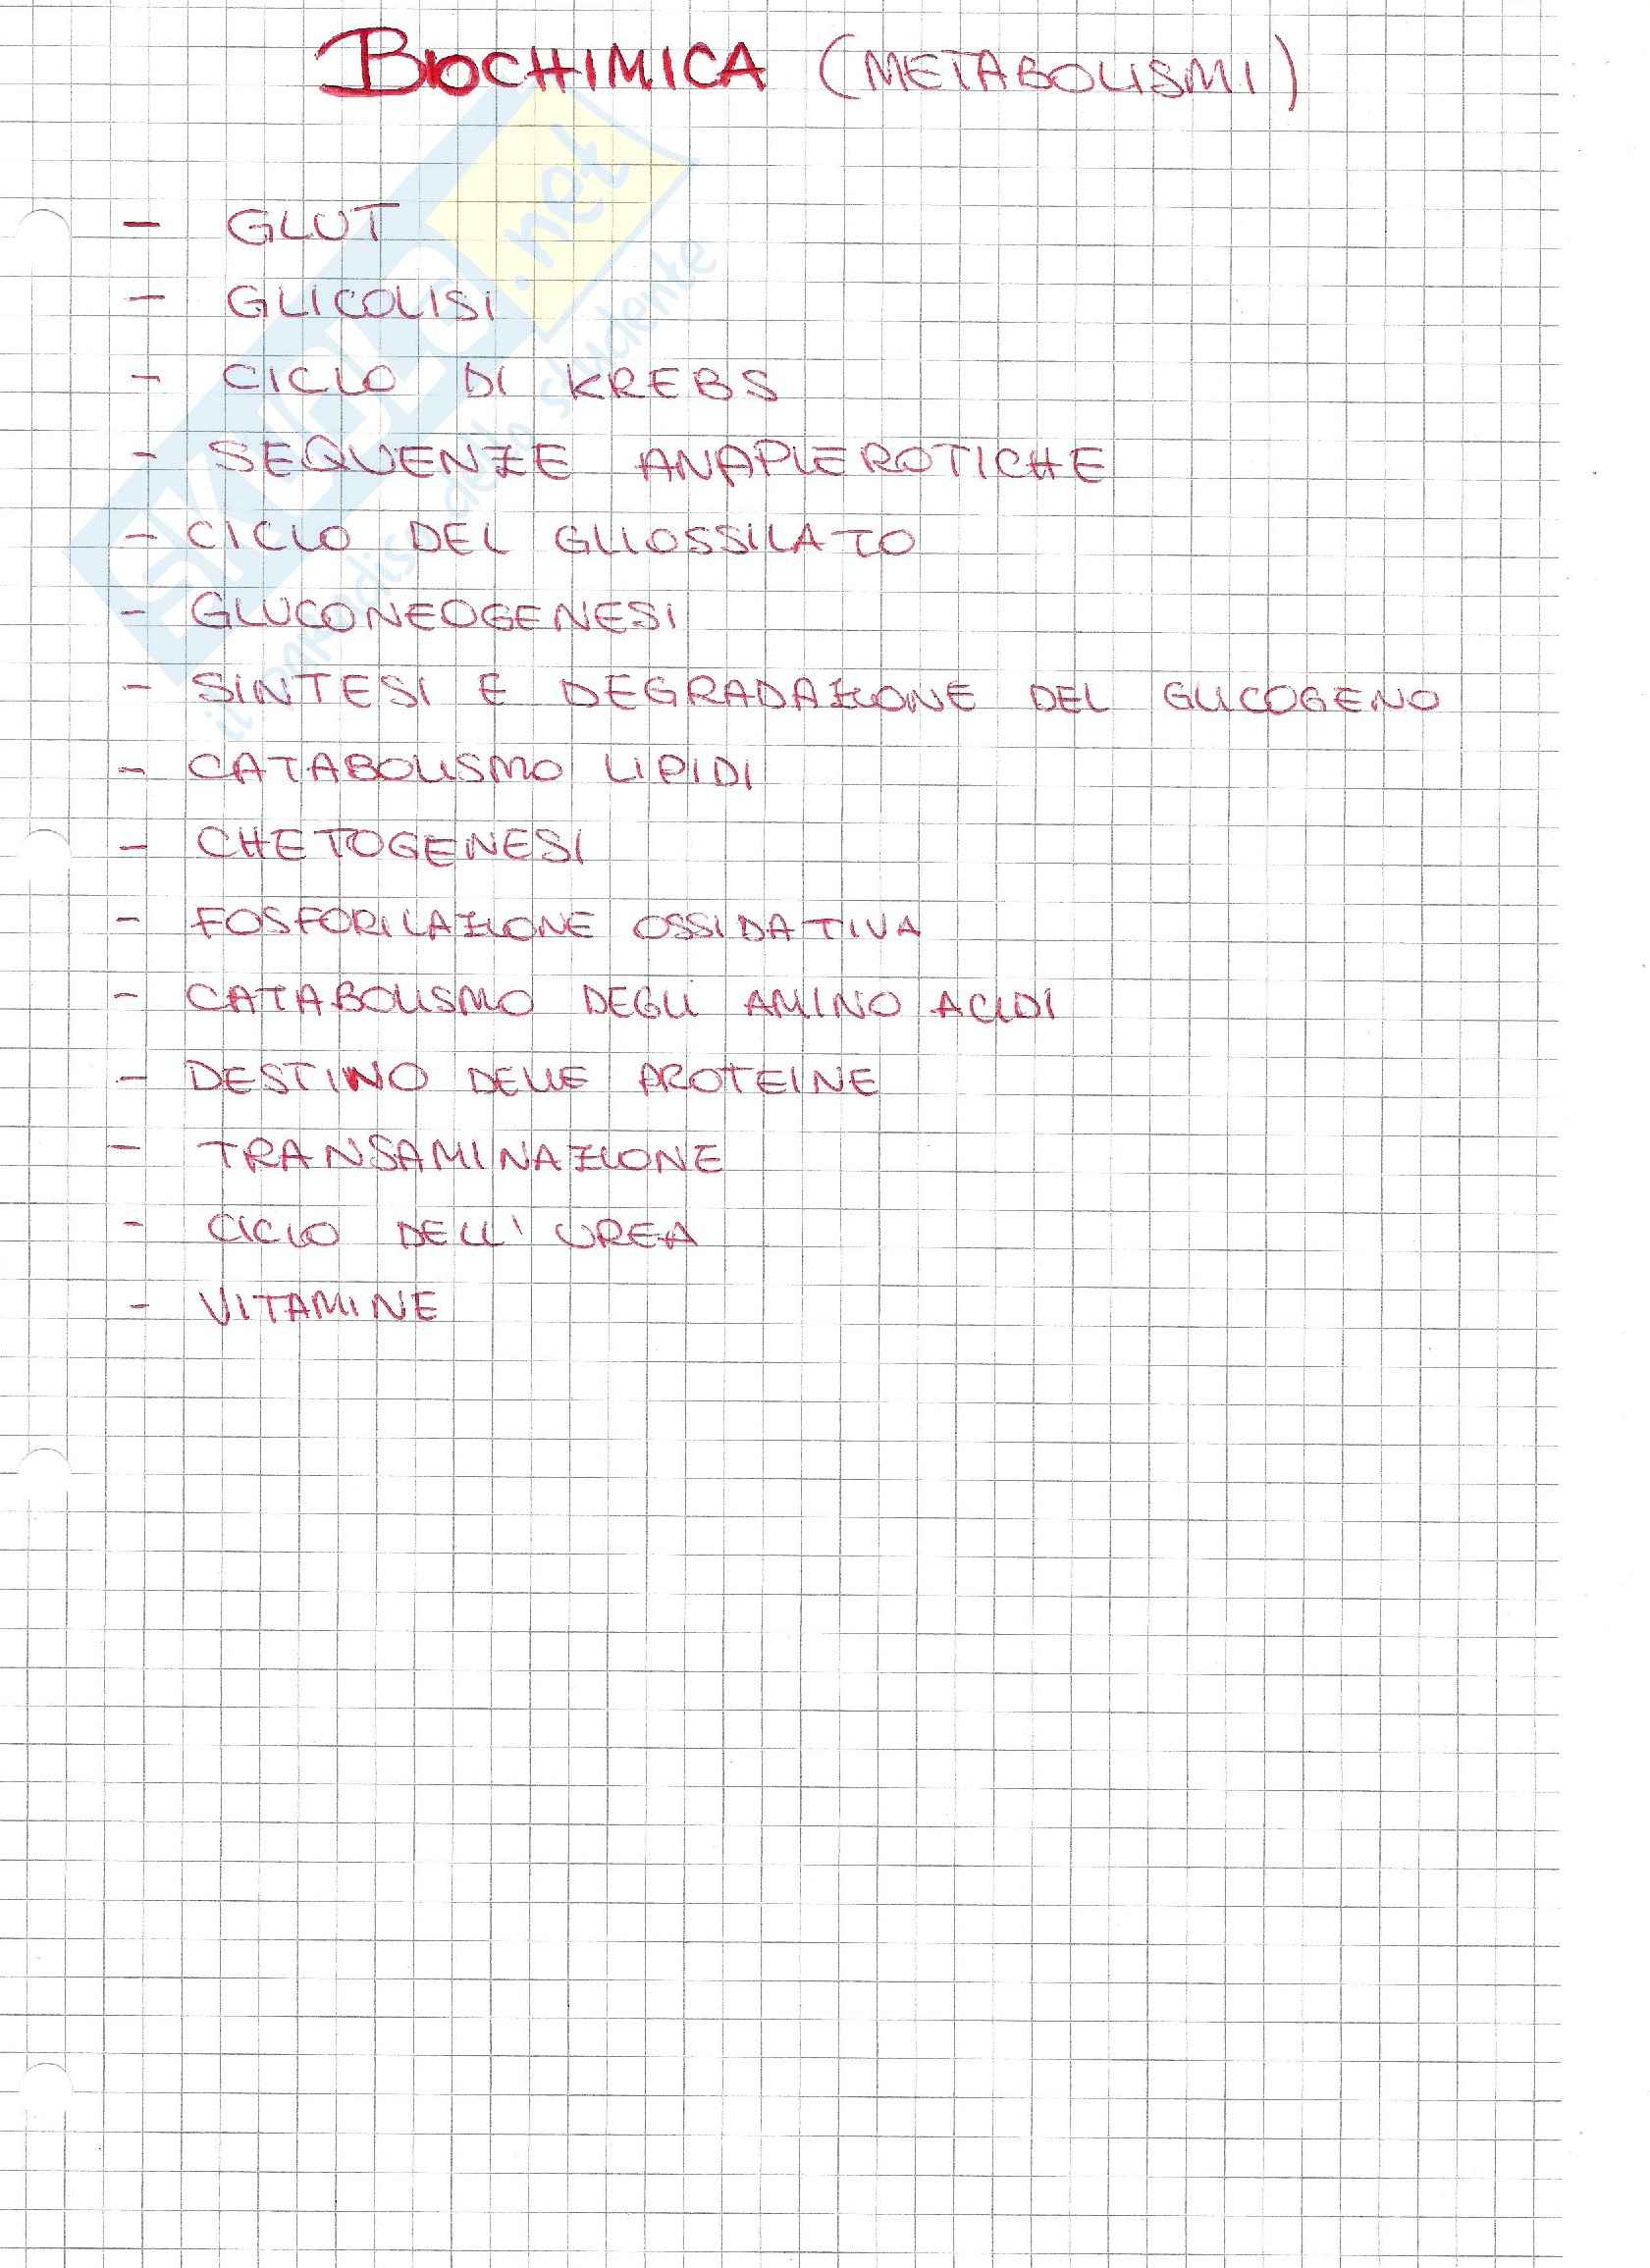 BIOCHIMICA (METABOLISMI)
- GLUT
- GLICOLISI
- CICLO DI KREBS
- SEQUENZE ANAPLEROTICHE
- CICLO DEL GLIOSSILATO
- GLUCONEOGENESI
- SINTESI E DEGRADAZIONE DEL GLICOGENO
- CATABOLISMO LIPIDI
- CHETOGENESI
- FOSFORILAZIONE OSSIDATIVA
- CATABOLISMO DEGLI AMINO ACIDI
- DESTINO DELLE PROTEINE
- TRANSAMINAZIONE
- CICLO DELL' UREA
- VITAMINE
SKUOLA.net
il paradiso dello studente